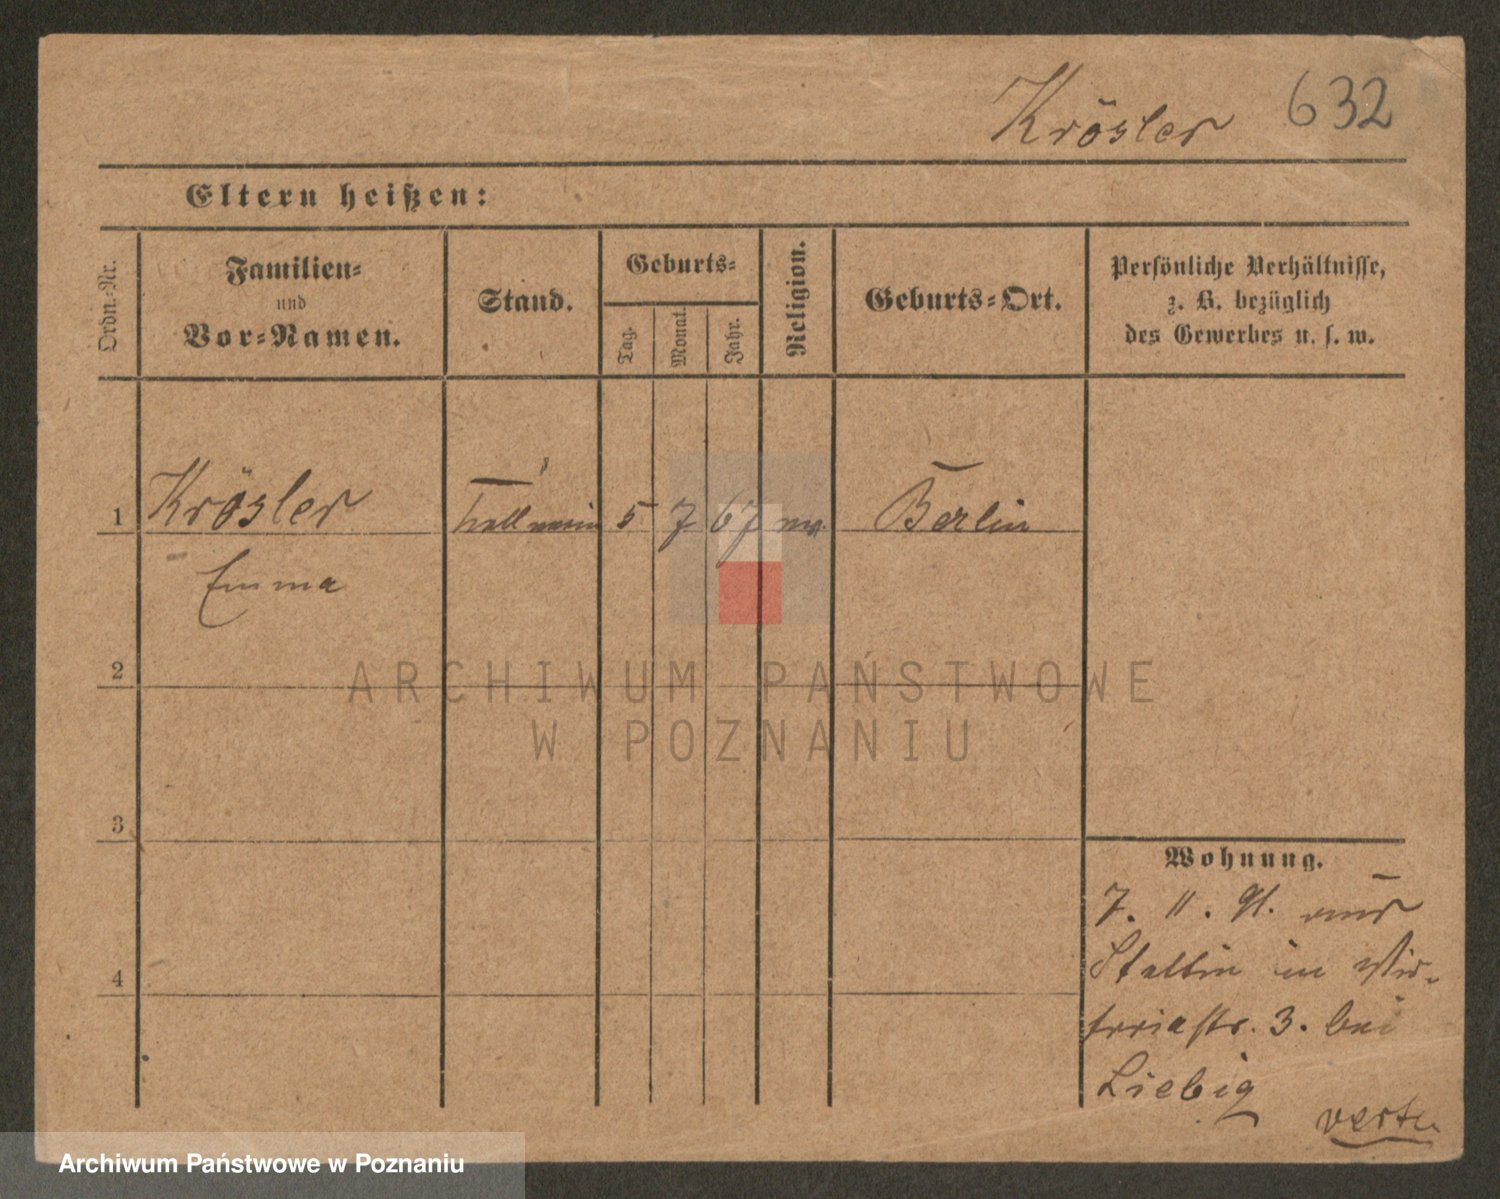 Krösler 632
Eltern heißen:
Ordn.-Nr.
Familien-
und
Vor-Namen.
Stand.
Geburts-
Tag.
Monat.
Jahr.
Religion.
Geburts-Ort.
Persönliche Verhältnisse,
z. B. bezüglich
des Gewerbes u. s. w.
1 Krösler 5 7 67 Berlin
Emma
2
3
4
Wohnung.
7. 11. 91. aus
Stettin in Vic-
toriastr. 3. bei
Liebig
verte
ARCHIWUM PAŃSTWOWE
W POZNANIU
Archiwum Państwowe w Poznaniu